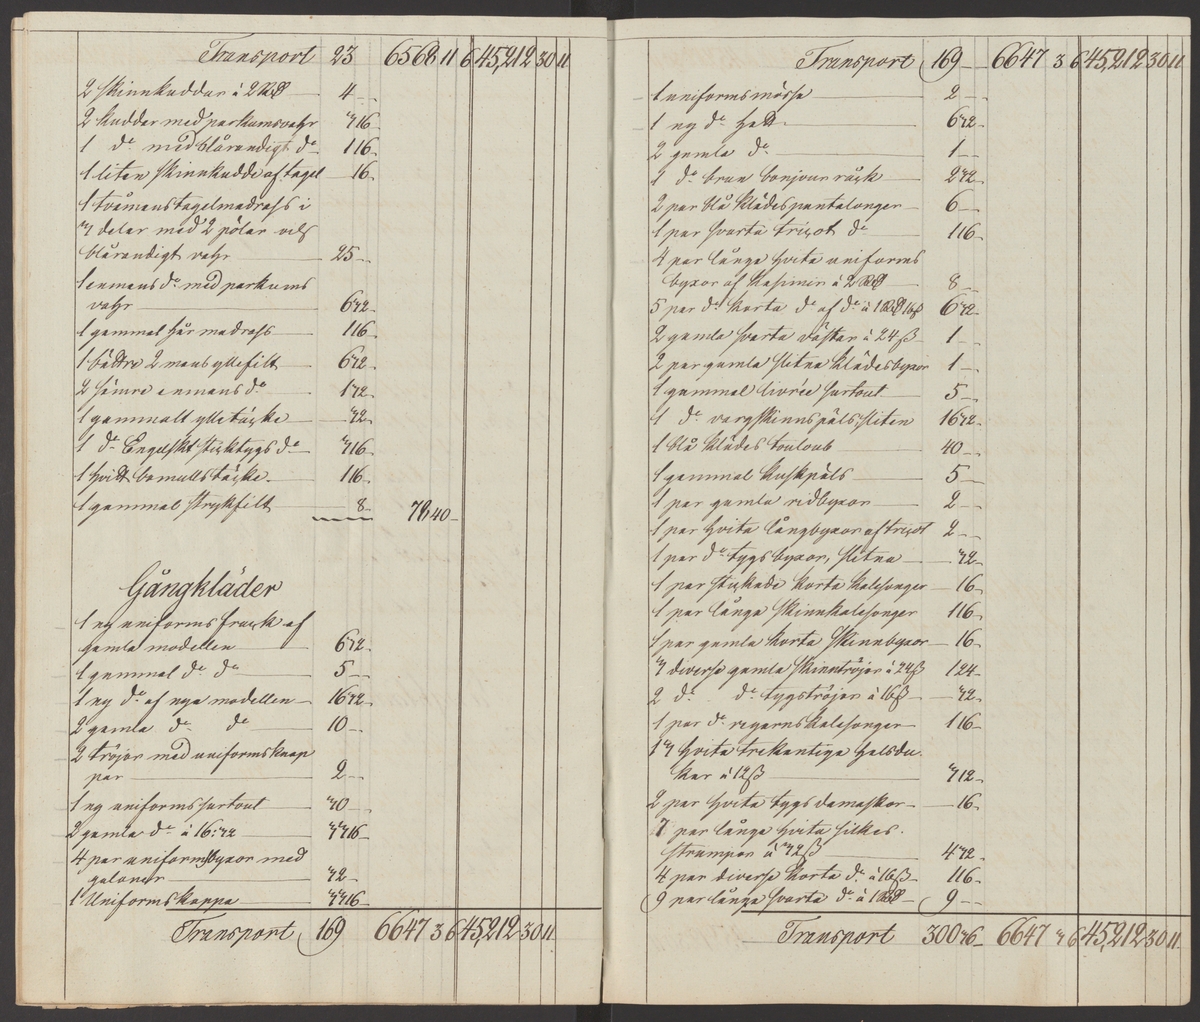 Transport 23 6568 11 6 45,212 30 11
2 skinnkuddar à 2 Rd 4 -
2 kuddar med parkumsvahr 3 16 -
1 do med blårandigt do 1 16 -
1 liten skinnkudde af tagel 16 -
1 tvåmanstagelmadrass i
3 delar med 2 pölar
blårandigt vahr 25 -
1 enmans do med parkums
vahr 6 32 -
1 gammal hår madrass 1 16
1 bättre 2 mans yllefilt 6 32 -
2 sämre enmans do 1 32 -
1 gammalt ylletäcke 32 -
1 do Engelskt sticktygs do 3 16 -
1 hvitt bomullstäcke 1 16 -
1 gammal strykfilt 8 - 78 40 -
Gångkläder
1 ny uniformsfrack af
gamla modellen 6 32 -
1 gammal do do 5 -
1 ny do af nya modellen 16 32 -
2 gamla do do 10 -
2 tröjor med uniformsknap
par 2 -
1 ny uniformssurtout 30 -
2 gamla do à 16:32 33 16 -
4 par uniformsbyxor med
galoner 32 -
1 Uniformskappa 33 16 -
Transport 169 6647 3 6 45,212 30 11
Transport 169 - 6647 3 6 45,212 30 11
1 uniformsmössa 2 -
1 ny do hatt 6 32 -
2 gamla do 1 -
1 do brun bonjour råck 2 32 -
2 par blå klädespantalonger 6 -
1 par svarta tricot do 1 16 -
4 par långa hvita uniforms
byxor af kasimir à 2 Rd 8 -
5 par do korta do af do à 1 Rd 16 ß 6 32 -
2 gamla svarta västar à 24 ß 1 -
2 par gamla slitna klädesbyxor 1 -
1 gammal livrée surtout 5 -
1 do vargskinnspäls, sliten 16 32 -
1 blå klädes touloub 40 -
1 gammal kuskpäls 5 -
1 par gamla ridbyxor 2 -
1 par hvita långbyxor af tricot 2 -
1 par do tygsbyxor, slitna 32 -
1 par stickade korta kalesonger 16 -
1 par långa skinnkalesonger 1 16 -
1 par gamla korta skinnbyxor 16 -
3 diverse gamla skinntröjor à 24 ß 1 24 -
2 do do tygströjor à 16 ß 32 -
1 par do kalesonger 1 16 -
13 hvita trekantiga halsdu
kar à 12 ß 3 12 -
2 par hvita tygsdamasker 16 -
7 par långa hvita silkes
strumpor à 32 ß 4 32 -
4 par diverse korta do à 16 ß 1 16 -
9 par långa svarta do à 1 Rd 9 -
Transport 300 36 6647 3 6 45,212 30 11